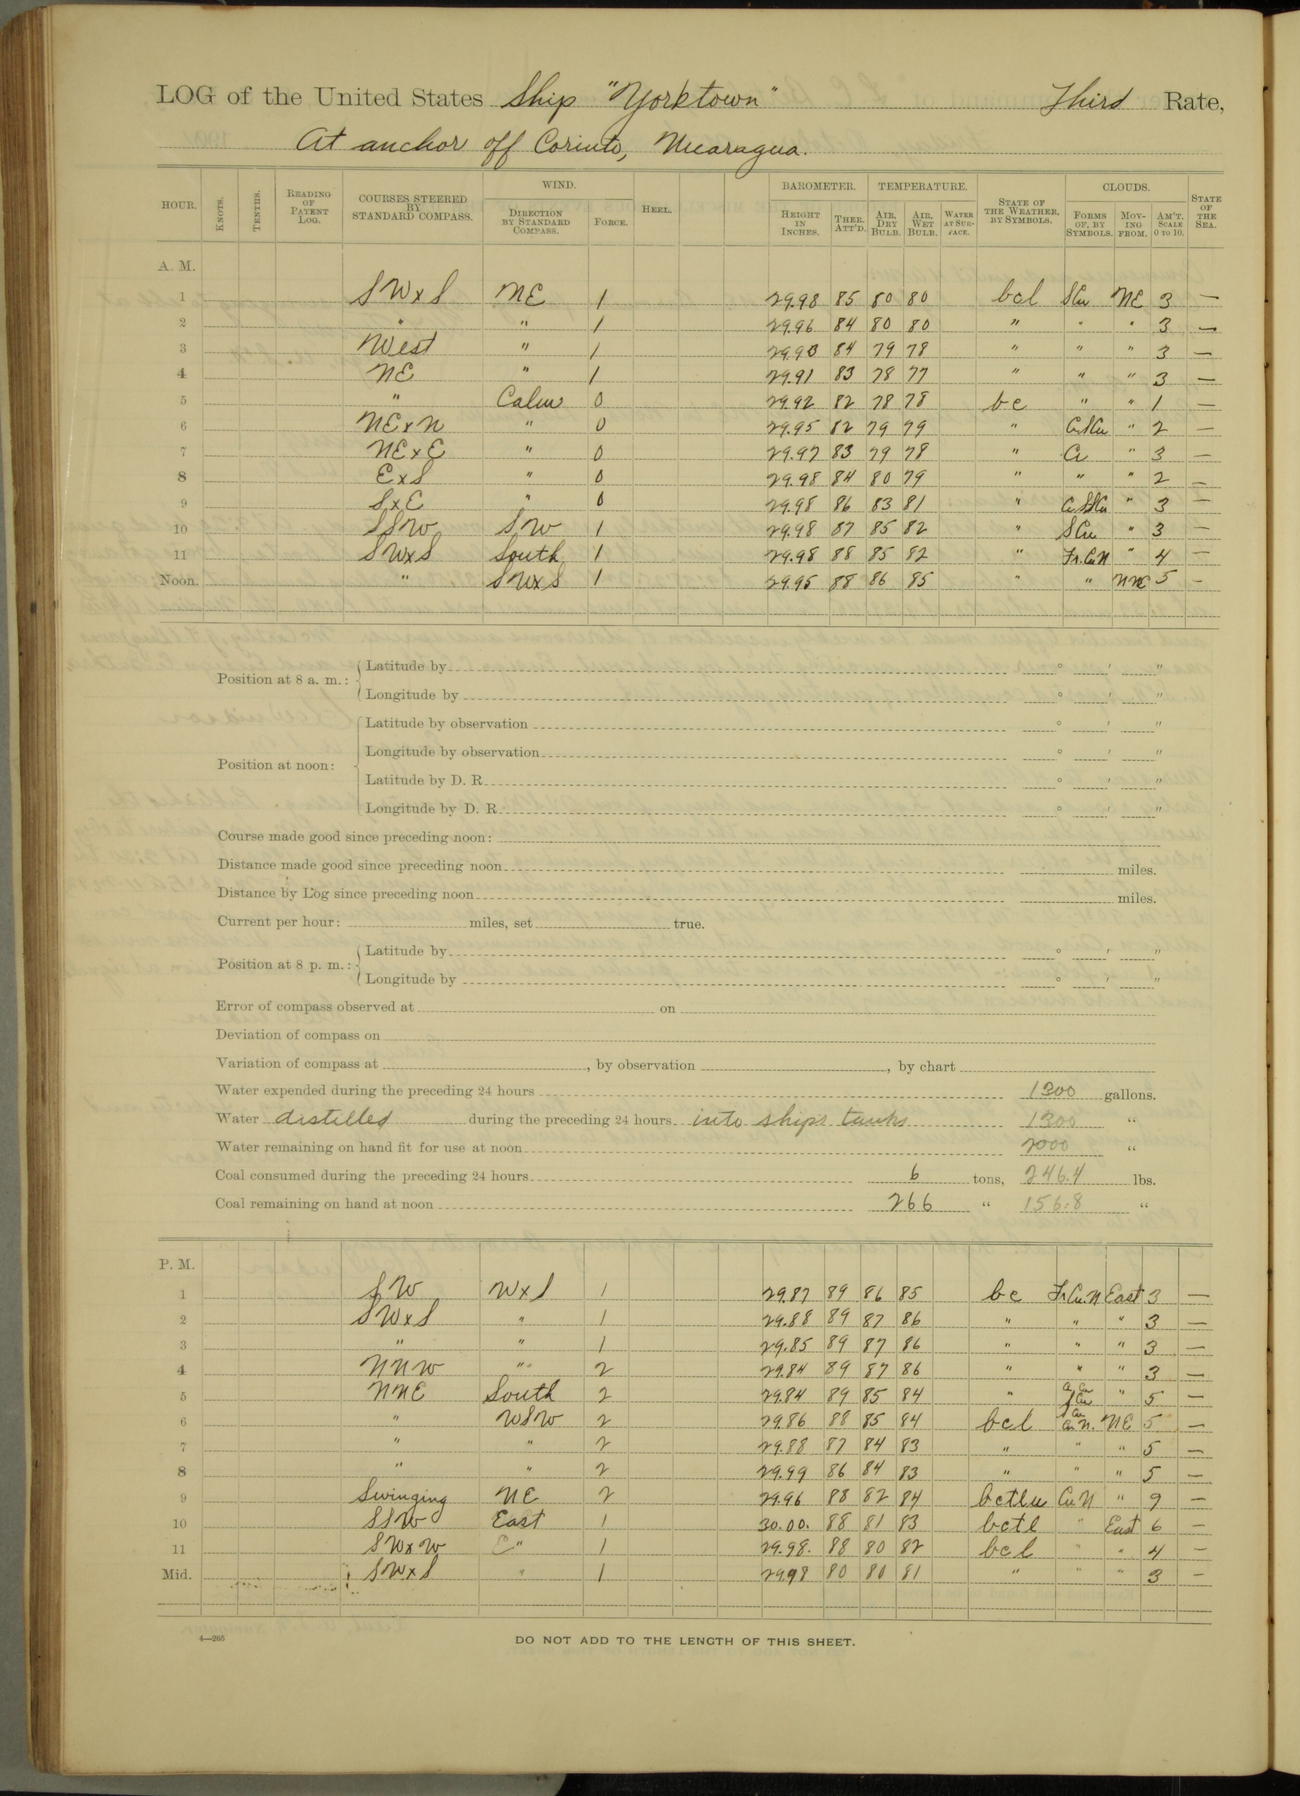 LOG of the United States Ship "Yorktown" Third Rate,
At anchor off Corinto, Nicaragua.
HOUR. KNOTS. TENTHS. READING OF PATENT LOG. COURSES STEERED BY STANDARD COMPASS. WIND. DIRECTION BY STANDARD COMPASS. FORCE. HEEL. BAROMETER. HEIGHT IN INCHES. THER. ATT'D. TEMPERATURE. AIR, DRY BULB. AIR, WET BULB. WATER AT SURFACE. STATE OF THE WEATHER, BY SYMBOLS. CLOUDS. FORMS OF, BY SYMBOLS. MOVING FROM. AM'T. SCALE 0 TO 10. STATE OF THE SEA.
A. M.
1 SWxS NE 1 29.98 85 80 80 bcl SCu NE 3 —
2 " " 1 29.96 84 80 80 " " " 3 —
3 West " 1 29.93 84 79 78 " " " 3 —
4 NE " 1 29.91 83 78 77 " " " 3 —
5 " Calm 0 29.92 82 78 78 bc " " 1 —
6 NExN " 0 29.95 82 79 79 " C.SCu " 2 —
7 NExE " 0 29.97 83 79 78 " Cu " 3 —
8 ExS " 0 29.98 84 80 79 " " " 2 —
9 SxE " 0 29.98 86 83 81 " " 3 —
10 SSW SW 1 29.98 87 85 82 " SCu " 3 —
11 SWxS South 1 29.98 88 85 82 " Fr.CuN " 4 —
Noon. " SWxS 1 29.95 88 86 85 " " NNE 5 —
Position at 8 a. m.: Latitude by ° ' "
Longitude by ° ' "
Position at noon: Latitude by observation ° ' "
Longitude by observation ° ' "
Latitude by D. R. ° ' "
Longitude by D. R. ° ' "
Course made good since preceding noon:
Distance made good since preceding noon miles.
Distance by Log since preceding noon miles.
Current per hour: miles, set true.
Position at 8 p. m.: Latitude by ° ' "
Longitude by ° ' "
Error of compass observed at on
Deviation of compass on
Variation of compass at , by observation , by chart
Water expended during the preceding 24 hours 1300 gallons.
Water distilled during the preceding 24 hours into ships tanks 1300 "
Water remaining on hand fit for use at noon 2000 "
Coal consumed during the preceding 24 hours 6 tons, 246.4 lbs.
Coal remaining on hand at noon 266 " 156.8 "
P. M.
1 SW WxS 1 29.87 89 86 85 bc Fr.Cu.N East 3 —
2 SWxS " 1 29.88 89 87 86 " " " 3 —
3 " " 1 29.85 89 87 86 " " " 3 —
4 NNW " 2 29.84 89 87 86 " " " 3 —
5 NNE South 2 29.84 89 85 84 " " 5 —
6 " WSW 2 29.86 88 85 84 bcl SCu CuN. NE 5 —
7 " " 2 29.88 87 84 83 " " " 5 —
8 " " 2 29.99 86 84 83 " " " 5 —
9 Swinging NE 2 29.96 88 82 84 bctlu CuN " 9 —
10 SSW East 1 30.00. 88 81 83 bctl " East 6 —
11 SWxW " 1 29.98. 88 80 82 bcl " " 4 —
Mid. SWxS " 1 29.98 80 80 81 " " " 3 —
4—265
DO NOT ADD TO THE LENGTH OF THIS SHEET.